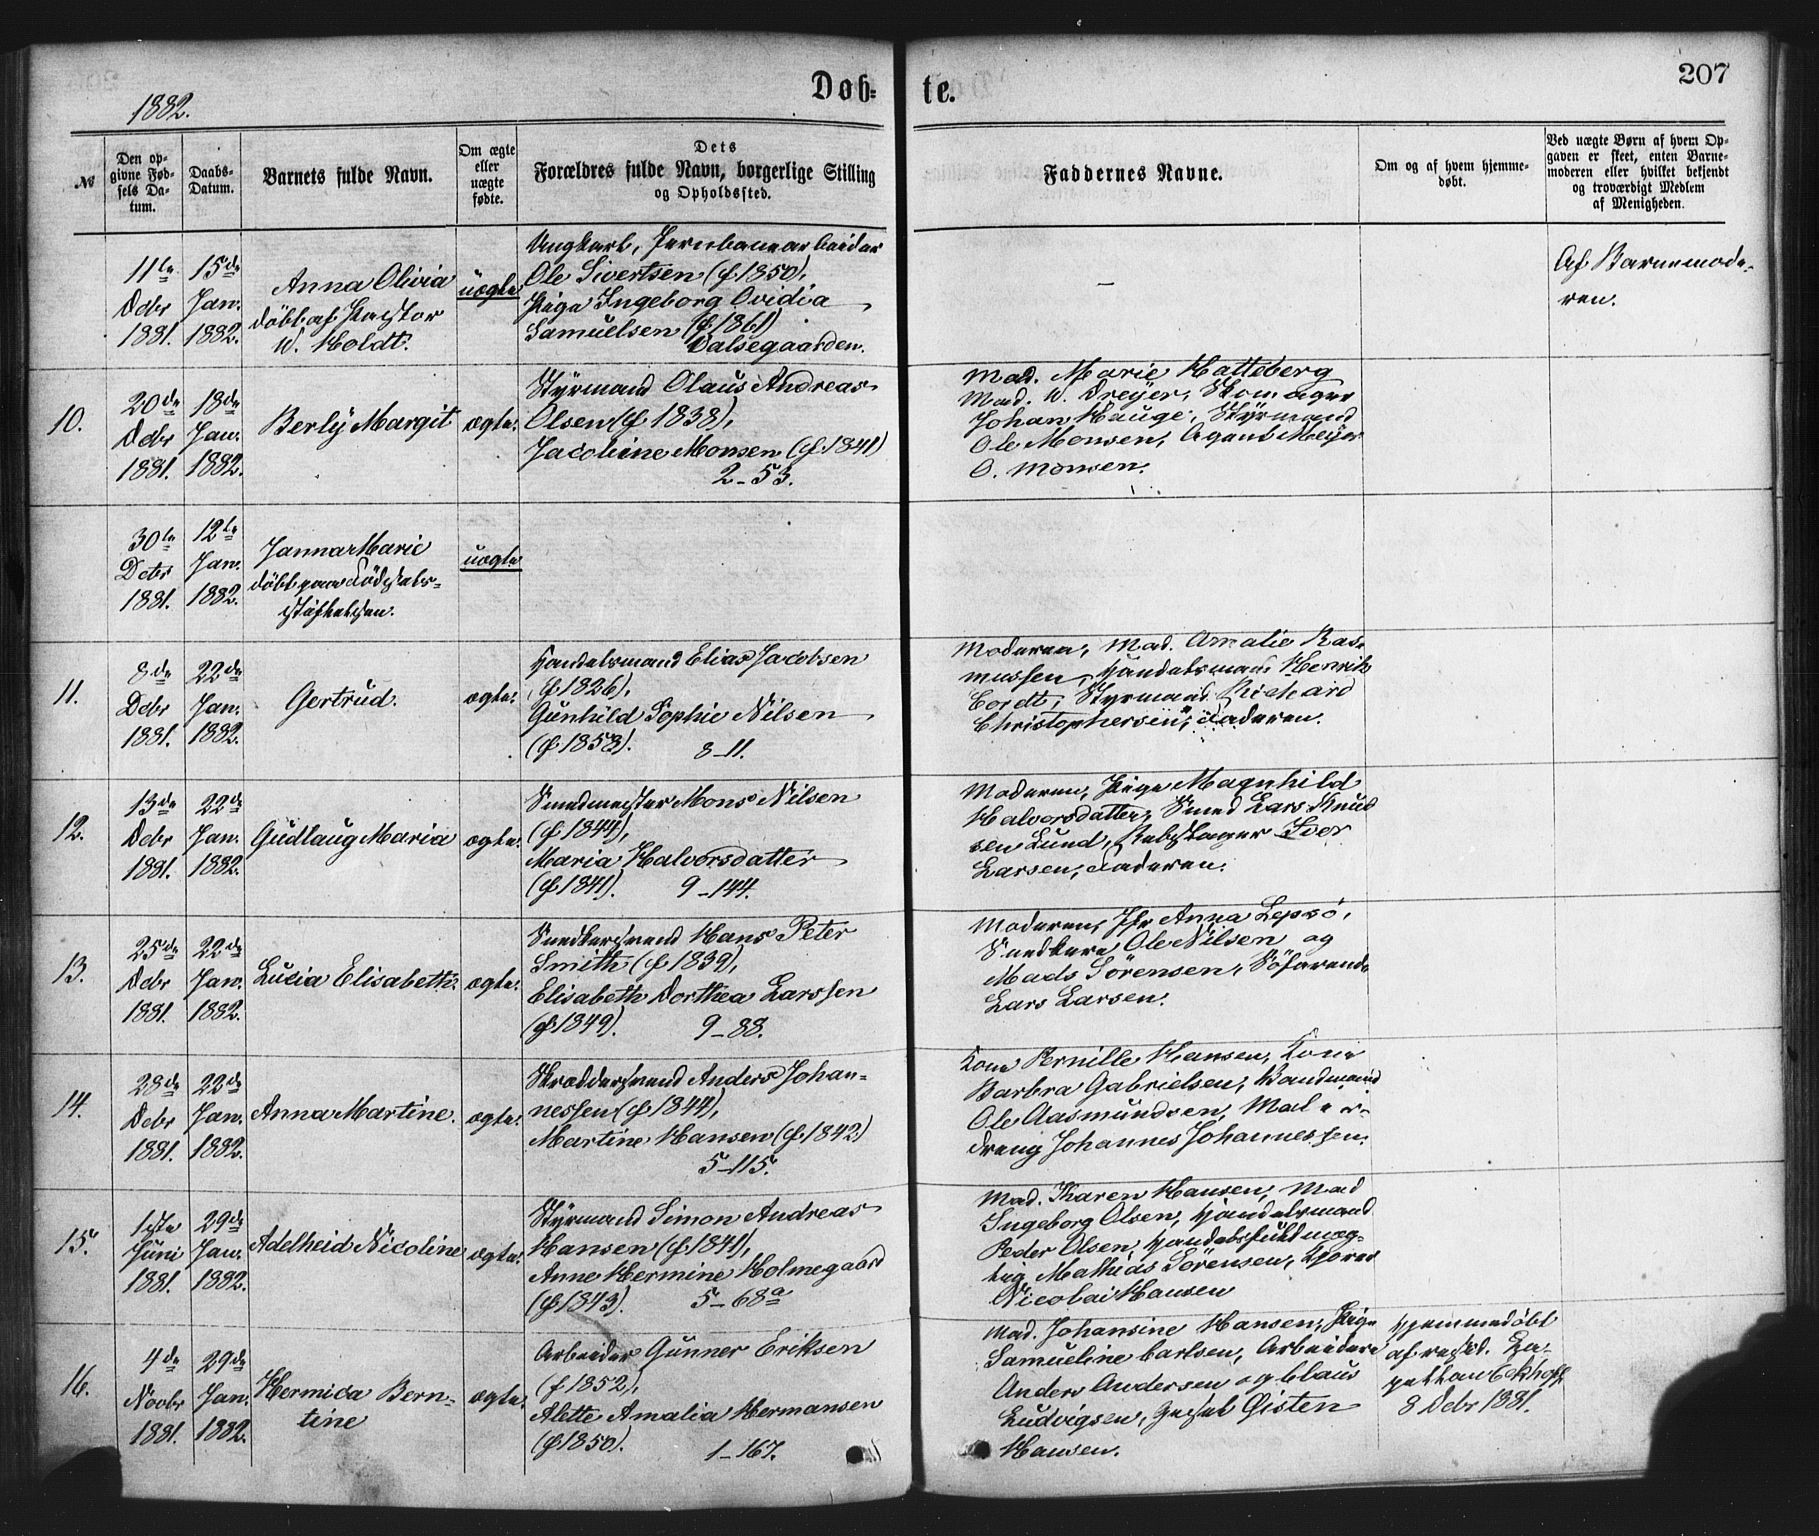 207
Døb=
te.
1882.
№
Den op-
givne Fød-
sels Da-
tum.
Daabs-
Datum.
Barnets fulde Navn.
Om ægte
eller
uægte
fødte.
Dets
Forældres fulde Navn, borgerlige Stilling
og Opholdssted.
Faddernes Navne.
Om og af hvem hjemme-
døbt.
Ved uægte Børn af hvem Op-
gaven er skeet, enten Barne-
moderen eller hvilket bekjendt
og troværdigt Medlem
af Menigheden.
11te
Dcbr
1881.
15de
Jan.
1882.
Anna Olivia
döbt af Pastor
W. Holdt.
uægte
Ungkarl, Jernbanearbeider
Ole Sivertsen (f. 1850),
Pige Ingeborg Ovidia
Samuelsen (f. 1861)
Dalsegaarden.
–
Af Barnemode-
ren.
10.
20de
Dcbr
1881.
18de
Jan.
1882.
Berly Margit
ægte.
Styrmand Olaus Andreas
Olsen (f. 1838),
Jacobine Monsen (f. 1841)
2–53.
Mad. Marie Hatteberg
Mad. W. Dreyer, Skomager
Johan Hauge, Styrmand
Ole Monsen, Agent Meyer
O. Monsen.
30te
Dcbr
1881.
12te
Jan.
1882.
Janna Marie
döbt paa Födsels-
stiftelsen.
uægte
11.
8de
Dcbr
1881.
22de
Jan.
1882.
Gertrud.
ægte.
Handelsmand Elias Jacobsen
(f. 1826),
Gunhild Sophie Nilsen
(f. 1858).
8–11.
Moderen, Mad. Amalie Ras-
mussen, Handelsmand Henrik
Cordt, Styrmand Richard
Christophersen, Faderen.
12.
13de
Dcbr
1881.
22de
Jan.
1882.
Gudlaug Maria
ægte.
Smedmester Mons Nilsen
(f. 1844),
Maria Halvorsdatter
(f. 1841).
9–144.
Moderen, Pige Magnhild
Halvorsdatter, Smed Lars Knud
sen Lund, Rebslager Iver
Larsen, Faderen.
13.
25de
Dcbr
1881.
22de
Jan.
1882.
Lucia Elisabeth.
ægte.
Snedkersvend Hans Peter
Smith (f. 1839),
Elisabeth Dorthea Larssen
(f. 1849).
9–88.
Moderen, Jfr Anna Lepsö,
Snedkere Ole Nilsen og
Mads Sörensen, Söfarende
Lars Larsen.
14.
28de
Dcbr
1881.
22de
Jan.
1882.
Anna Martine.
ægte.
Skræddersvend Anders Johan-
nessen (f. 1844),
Martine Hansen (f. 1842)
5–115.
Kone Pernille Hansen, Kone
Barbra Gabrielsen, Vandmand
Ole Aasmundsen, Maler-
dreng Johannes Johannessen.
15.
1ste
Juni
1881.
29de
Jan.
1882.
Adelheid Nicoline
ægte.
Styrmand Simon Andreas
Hansen (f. 1841),
Anne Hermine Holmegaard
(f. 1843).
5–68a
Mad. Karen Hansen, Mad
Ingeborg Olsen, Handelsmand
Peder Olsen, Handelsfuldmæg-
tig Mathias Sörensen, Kjører
Nicolai Hansen
16.
4de
Novbr
1881.
29de
Jan.
1882.
Hermica Bern-
tine
ægte.
Arbeider Gunner Eriksen
(f. 1852),
Alette Amalia Hermansen
(f. 1850).
1–167.
Mad. Johansine Hansen, Pige
Samueline Carlsen, Arbeidere
Anders Andersen og Claus
Ludvigsen, Gesel Øisten
Hansen.
Hjemmedöbt
af resid. Ca-
pellan Eckhoff
8 Dcbr 1881.